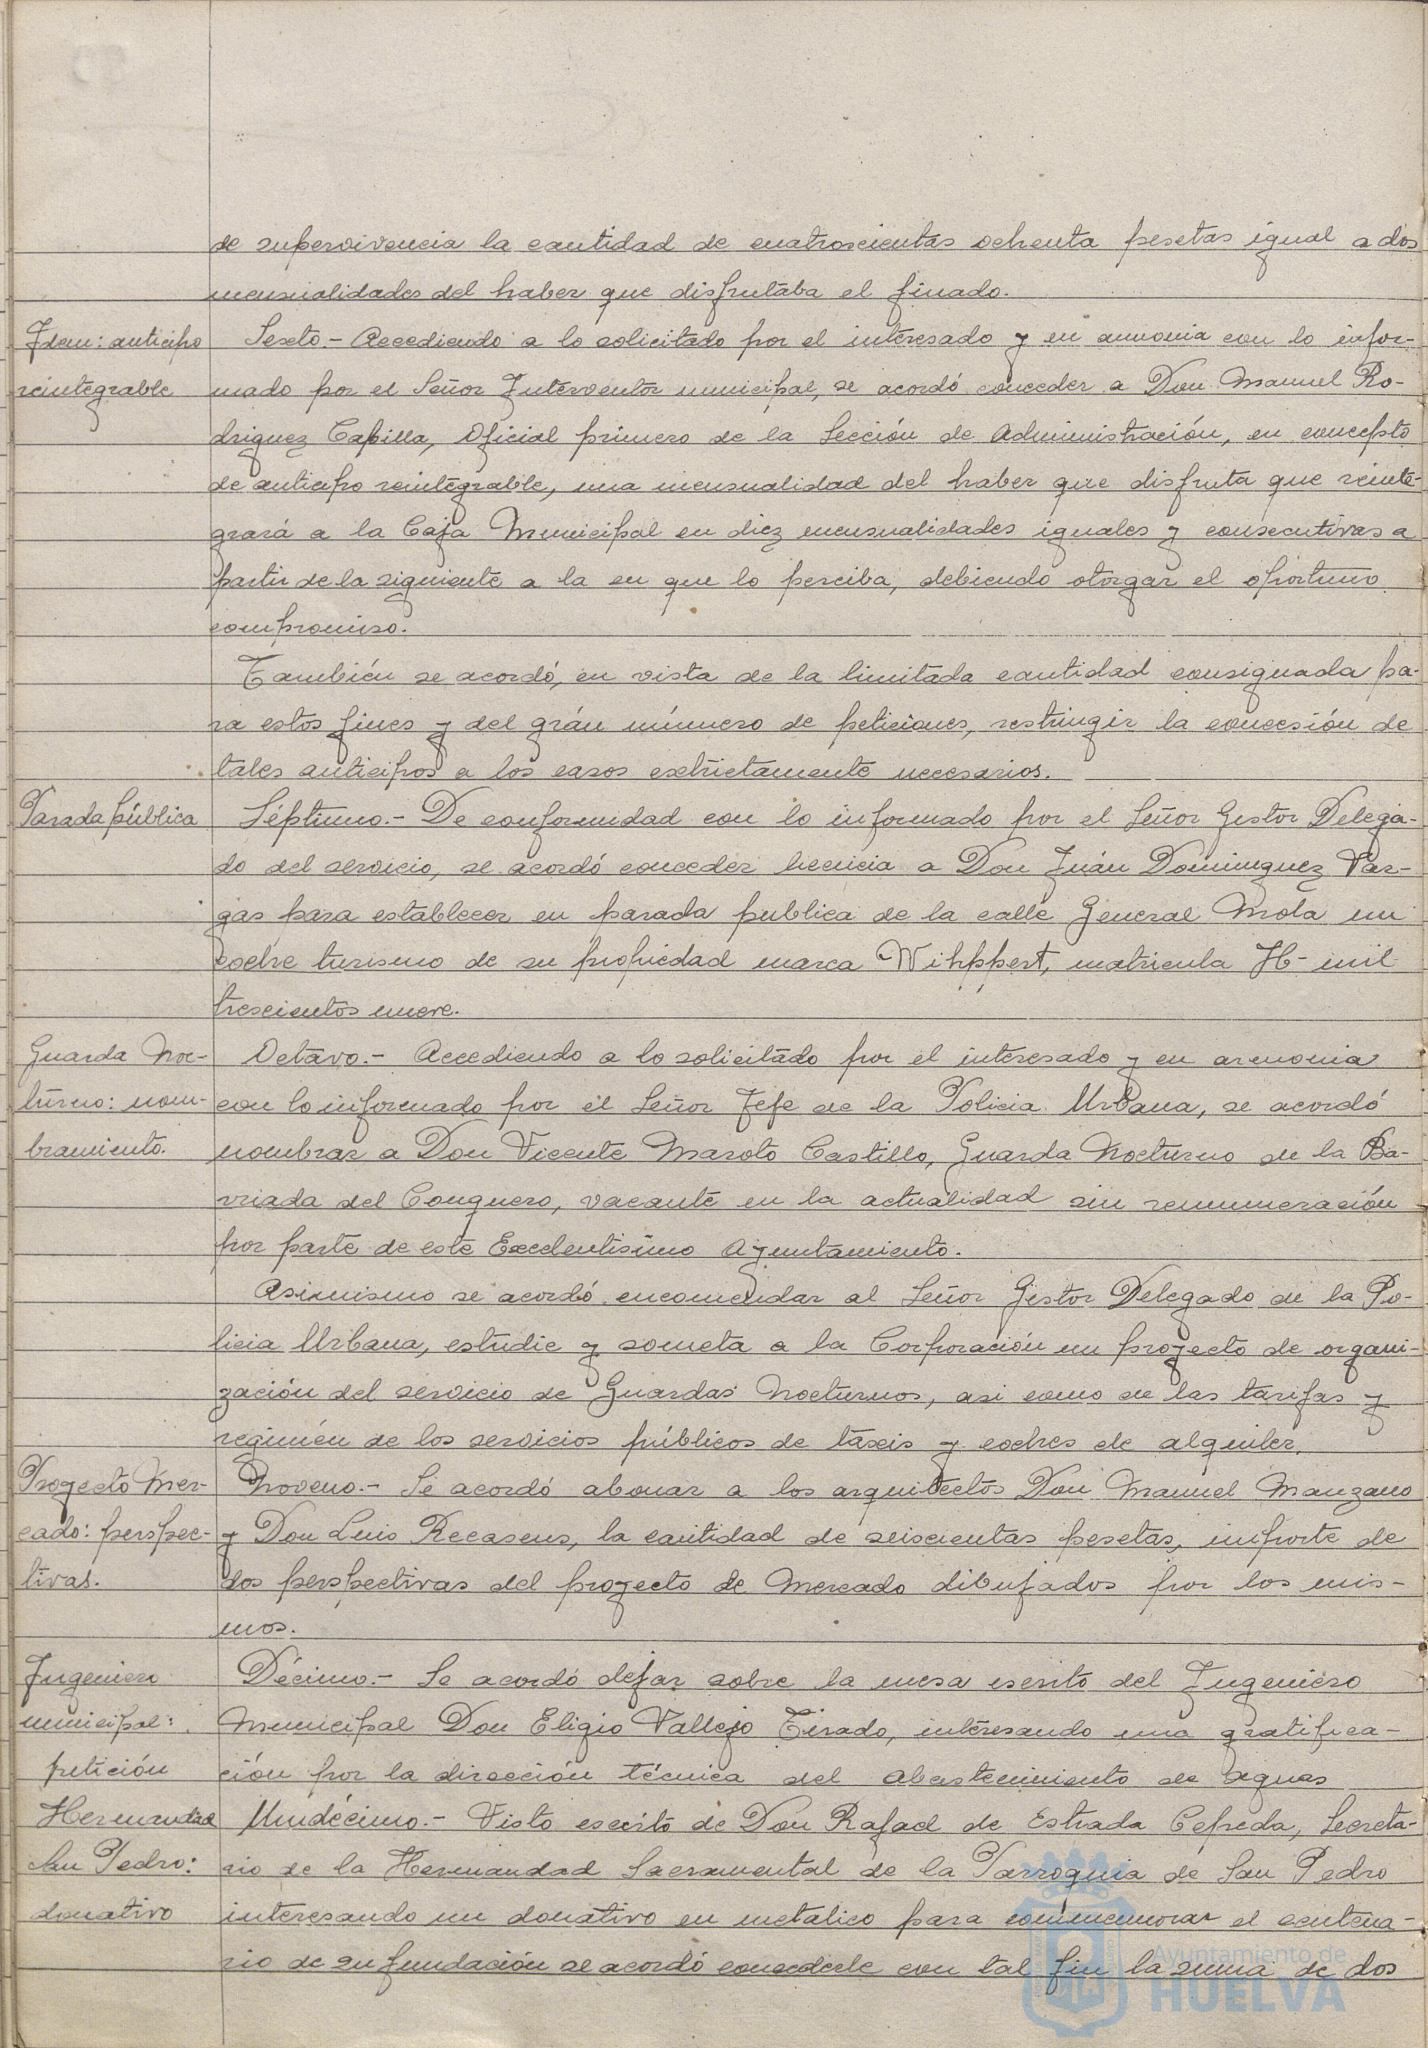 de supervivencia la cantidad de cuatrocientas ochenta pesetas igual a dos
mensualidades del haber que disfrutaba el finado.
Idem: anticipo
reintegrable
Sexto.- Accediendo a lo solicitado por el interesado y en armonia con lo infor-
mado por el Señor Interventor municipal, se acordó conceder a Don Manuel Ro-
driguez Capilla, Oficial primero de la Sección de Administración, en concepto
de anticipo reintegrable, una mensualidad del haber que disfruta que reinte-
grará a la Caja Municipal en diez mensualidades iguales y consecutivas a
partir de la siguiente a la en que lo perciba, debiendo otorgar el oportuno
compromiso.
También se acordó, en vista de la limitada cantidad consignada pa-
ra estos fines y del grán número de peticiones, restringir la concesión de
tales anticipos a los casos estrictamente necesarios.
Parada pública
Séptimo.- De conformidad con lo informado por el Señor Gestor Delega-
do del servicio, se acordó conceder licencia a Don Juán Dominguez Var-
gas para establecer en parada publica de la calle General Mola un
coche turismo de su propiedad marca Wihppert, matricula H- mil
trescientos nueve.
Guarda Noc-
turno: nom-
bramiento.
Octavo.- Accediendo a lo solicitado por el interesado y en armonia
con lo informado por el Señor Jefe de la Policia Urbana, se acordó
nombrar a Don Vicente Maroto Castillo, Guarda Nocturno de la Ba-
rriada del Conquero, vacante en la actualidad sin remuneración
por parte de este Excelentisimo Ayuntamiento.
Asimismo se acordó encomendar al Señor Gestor Delegado de la Po-
licia Urbana, estudie y someta a la Corporación un proyecto de organi-
zación del servicio de Guardas Nocturnos, asi como de las tarifas y
regimén de los servicios públicos de taxis y coches de alquiler.
Proyecto Mer-
cado: perspec-
tivas.
Noveno.- Se acordó abonar a los arquitectos Don Manuel Manzano
y Don Luis Recasens, la cantidad de seiscientas pesetas, importe de
dos perspectivas del proyecto de Mercado dibujados por los mis-
mos.
Ingeniero
municipal:
petición
Décimo.- Se acordó dejar sobre la mesa escrito del Ingeniero
Municipal Don Eligio Vallejo Tirado, interesando una gratifica-
ción por la dirección técnica del abastecimiento de aguas
Hermandad
San Pedro:
donativo
Undécimo.- Visto escrito de Don Rafael de Estrada Cepeda, Secreta-
rio de la Hermandad Sacramental de la Parroquia de San Pedro
interesando un donativo en metalico para conmemorar el centena-
rio de su fundación se acordó concederle con tal fin la suma de dos
Ayuntamiento de
HUELVA